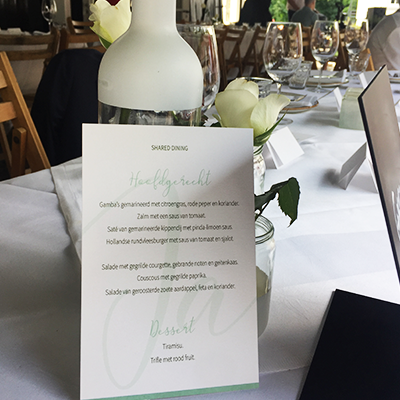 SHARED DINING
Hoofdgerecht
Gamba's gemarineerd met citroengras, rode peper en koriander.
Zalm met een saus van tomaat.
Saté van gemarineerde kippendij met pinda-limoen saus.
Hollandse rundvleesburger met saus van tomaat en sjalot.
Salade met gegrilde courgette, gebrande noten en geitenkaas.
Couscous met gegrilde paprika.
Salade van geroosterde zoete aardappel, feta en koriander.
Dessert
Tiramisu.
Trifle met rood fruit.